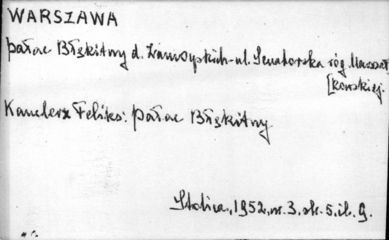 WARSZAWA
pałac Błękitny d. Zamoyskich - ul. Senatorska róg Marszał
[kowskiej.
Kanclerz Feliks: Pałac Błękitny.
Stolica, 1952, nr. 3, str. 5, il. 9.